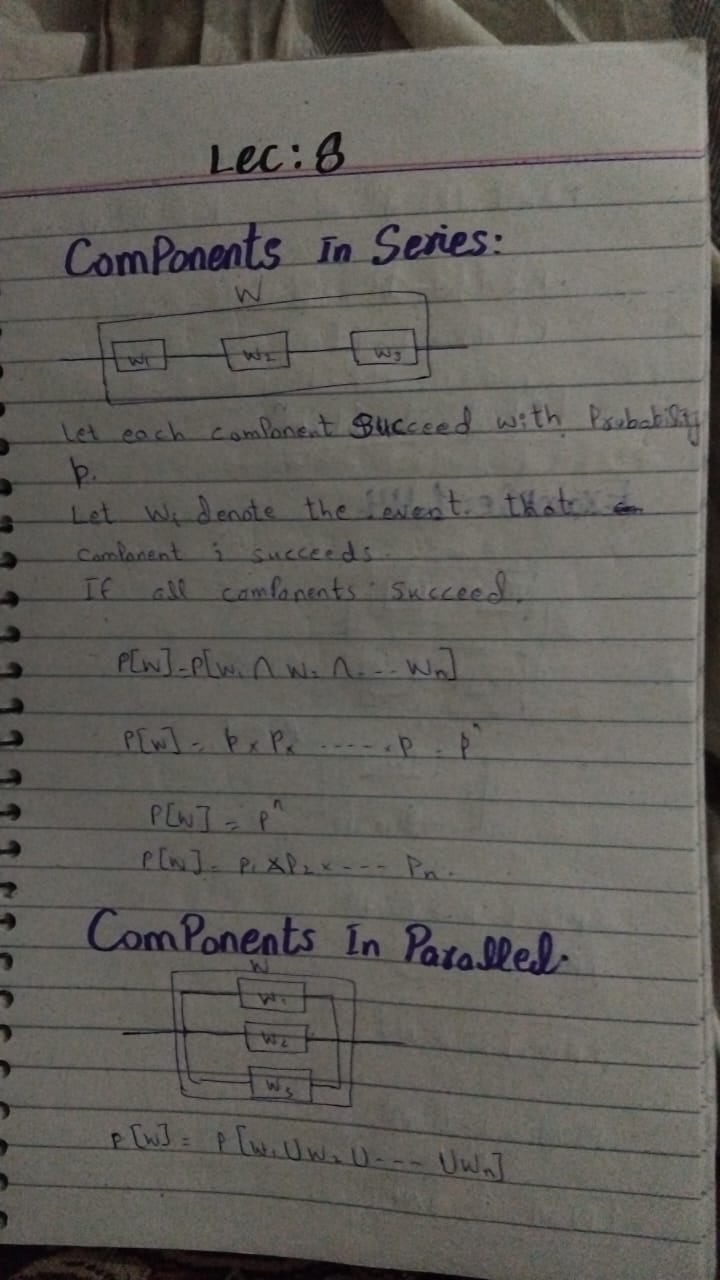 Lec: 8
Components in Series:
W
W1 W2 W3
Let each component Succeed with Probability
p.
Let Wi denote the event that
component i succeeds.
If all components succeed.
P[W]=P[W1 ∩ W2 ∩ ... Wn]
P[W] = p x Px ...... x P = p^n
P[W] = p^n
P[W] = P1 x P2 x --- Pn.
Components In Paralled.
W
W1
W2
W3
P[W] = P[W1 U W2 U --- U Wn]